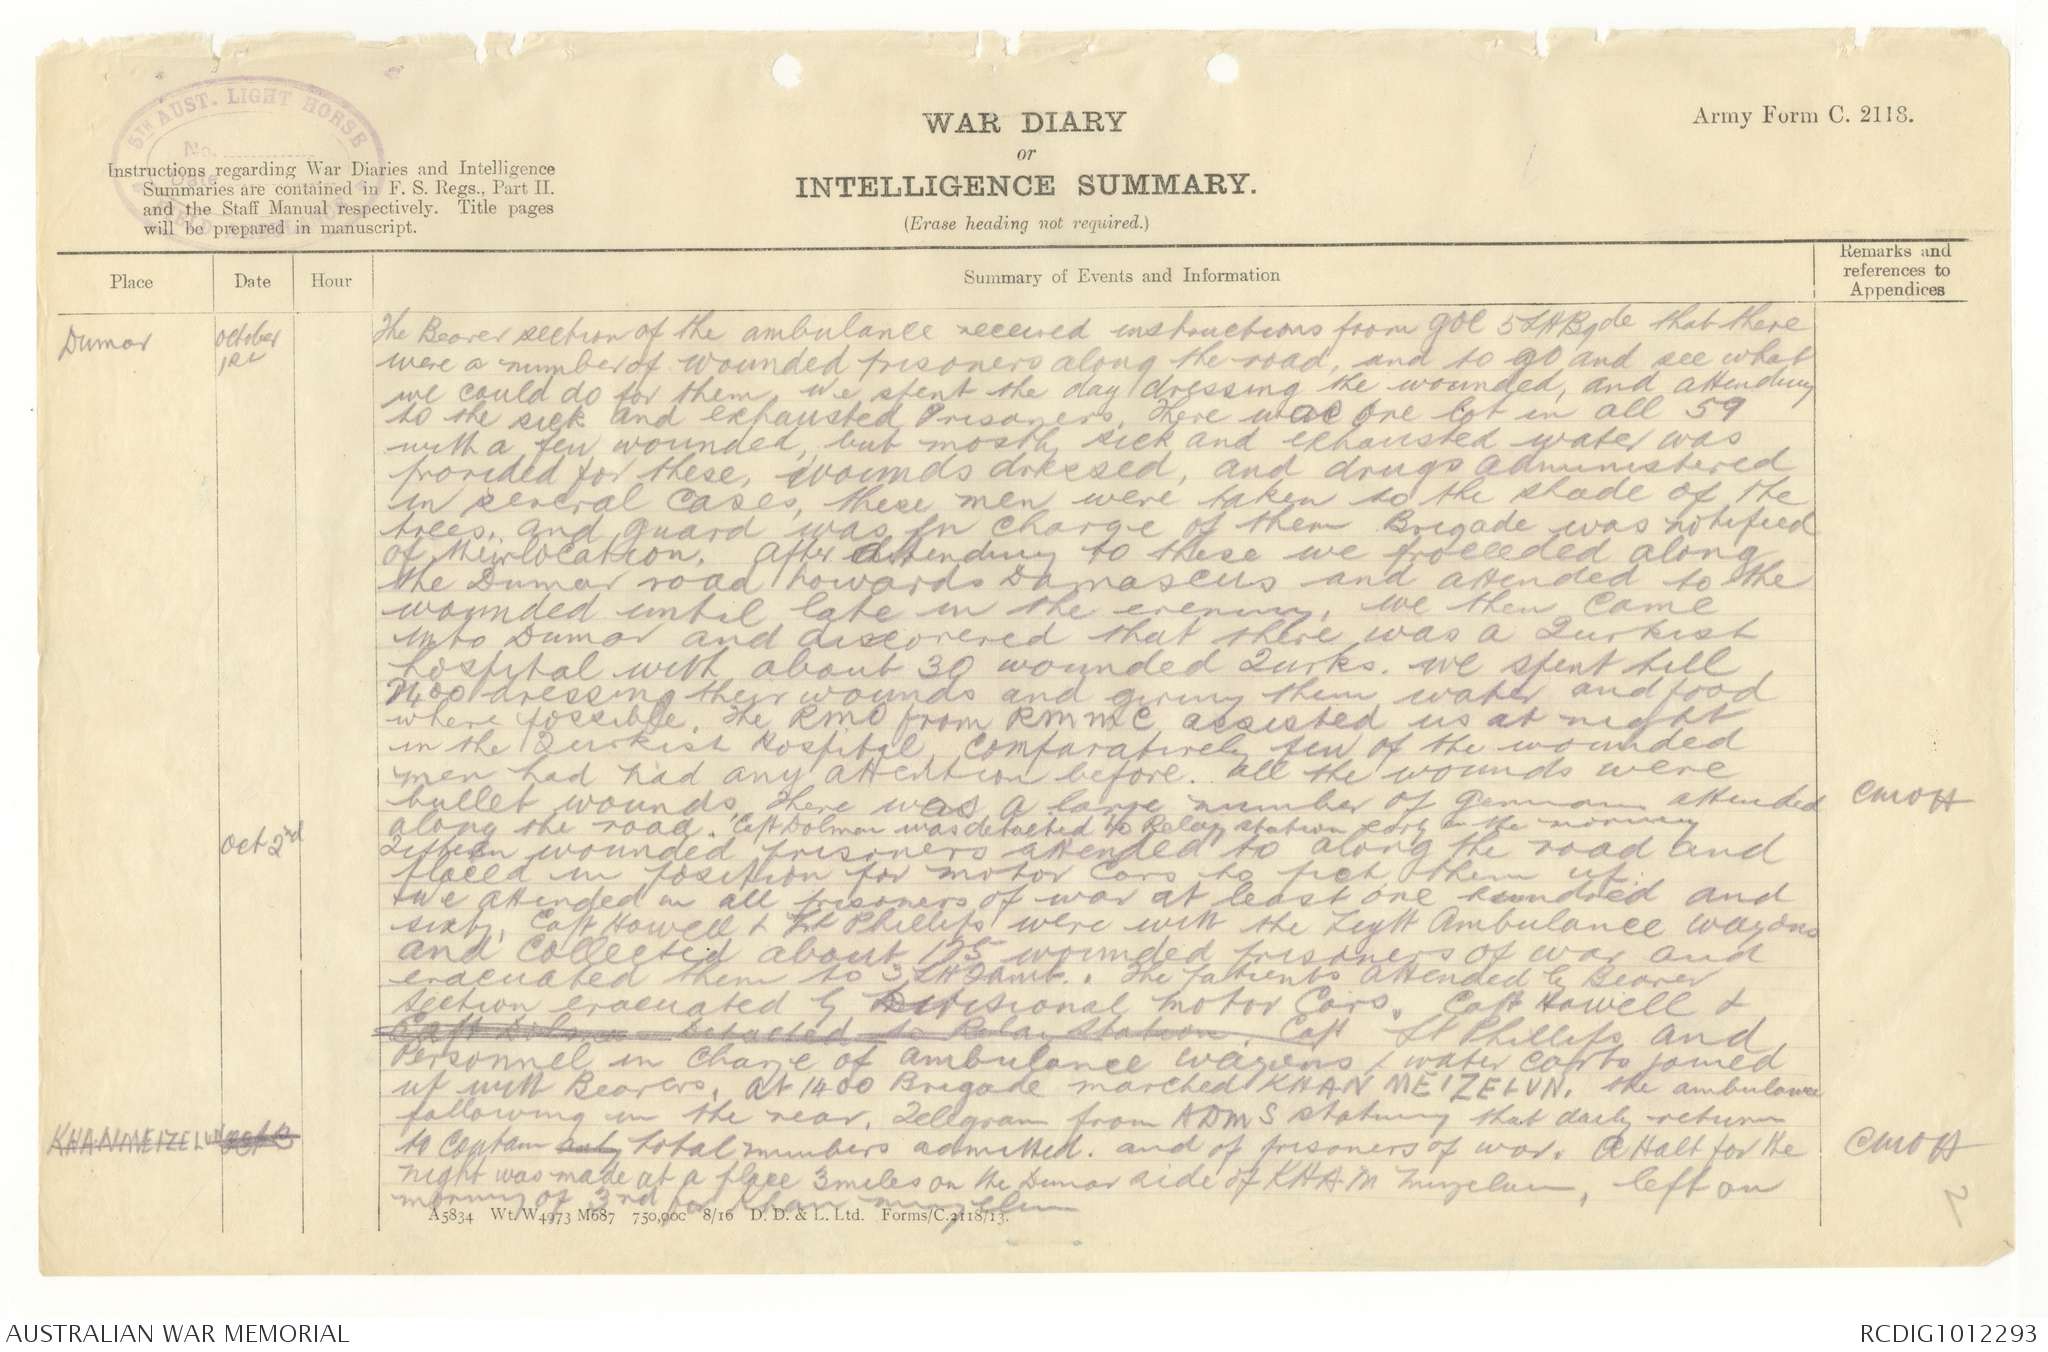 5TH AUST. LIGHT HORSE
No.
Date
WAR DIARY
or
INTELLIGENCE SUMMARY.
(Erase heading not required.)
Army Form C. 2118.
Instructions regarding War Diaries and Intelligence
Summaries are contained in F. S. Regs., Part II.
and the Staff Manual respectively. Title pages
will be prepared in manuscript.
Place Date Hour Summary of Events and Information Remarks and references to Appendices
Dumar October 1st
The Bearer section of the ambulance received instructions from GOC 5 LH Bgde that there
were a number of wounded prisoners along the road, and to go and see what
we could do for them. We spent the day dressing the wounded, and attending
to the sick and exhausted Prisoners. There was one lot in all 59
with a few wounded, but mostly sick and exhausted water was
provided for these, wounds dressed, and drugs administered
in several cases, these men were taken to the shade of the
trees, and guard was in charge of them Brigade was notified
of their location. After attending to these we proceeded along
the Dumar road towards Damascus and attended to the
wounded until late in the evening, we then came
into Dumar and discovered that there was a Turkish
hospital with about 30 wounded Turks. We spent till
2400 dressing their wounds and giving them water and food
where possible. The RMO from RMMC assisted us at night
in the Turkish Hospital. Comparatively few of the wounded
men had had any attention before. All the wounds were
bullet wounds, There was a large number of Germans attended CMOH
along the road. Capt Dolman was detached to Relay station early in the morning
Oct 2nd
Fifteen wounded prisoners attended to along the road and
placed in position for motor cars to pick them up.
We attended in all prisoners of war at least one hundred and
sixty, Capt Howell & Lt Phillips were with the Light Ambulance wagons
and collected about 175 wounded prisoners of war and
evacuated them to 3 LH F Amb.. The patients attended by Bearer
section evacuated by Divisional motor Cars. Capt Howell &
Capt Dolman Detached to Relay Station. Capt Lt Phillips and
Personnel in charge of ambulance wagons & water carts joined
up with Bearers. At 1400 Brigade marched KHAN MEIZELUN. the ambulance
following in the rear. Telegram from ADMS stating that daily return
KHAN MEIZELUN Oct 3
to contain only total numbers admitted. and of prisoners of war. A Halt for the CMOH
night was made at a place 3 miles on the Dumar side of KHAN Mizelun, left on
morning of 3rd for Khan Mizelun
2
A5834 Wt. W4973 M687 750,000 8/16 D. D. & L. Ltd. Forms/C.2118/13.
AUSTRALIAN WAR MEMORIAL
RCDIG1012293